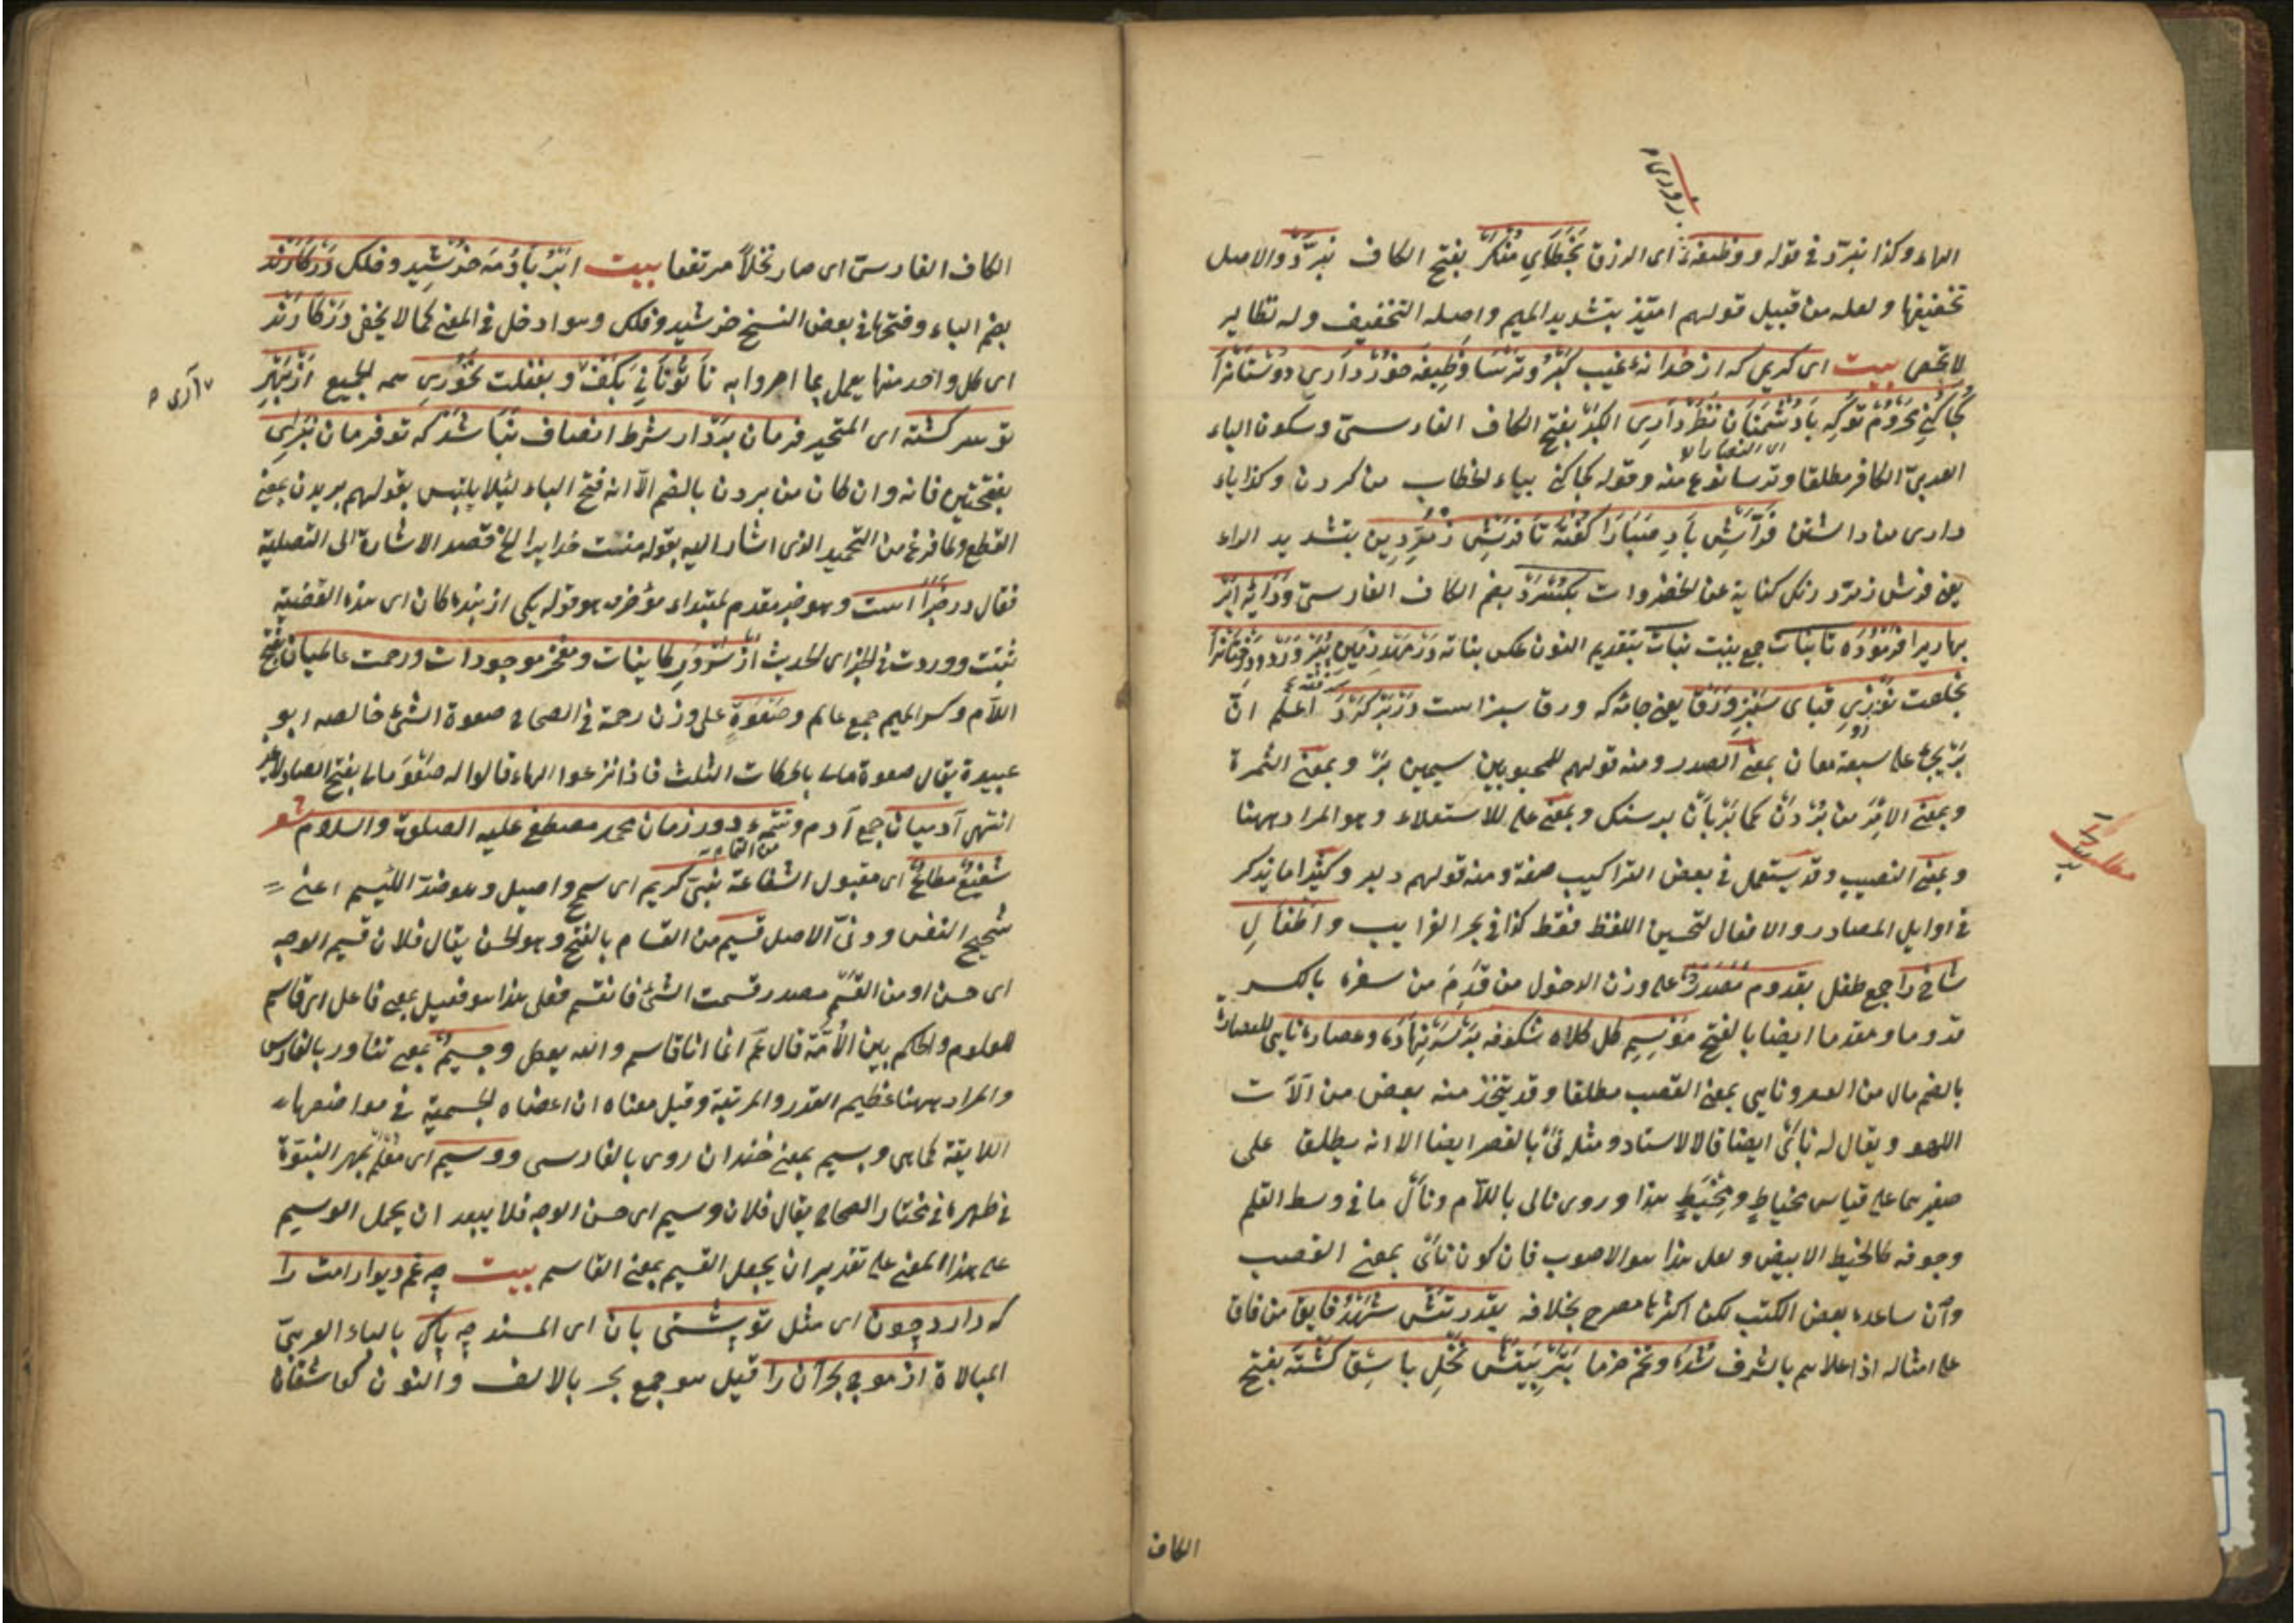 روزی م
الهاء وكذا نبرّد في قوله ووظيفهٔ اى الرزق بخطاى منكر بفتح الكاف نبرّد والاصل
تخفيفها ولعله من قبيل قولهم اميّذ بتشديد الميم واصله التخفيف وله نظاير
لا تحصى بيت اى كريمى كه از خزانهٔ غيب كبر وترسا وظيفه خور دارى دوستانرا
كجا كنى محروم توكه با دشمنان نظر دارى الكبر بفتح الكاف الفارسىّ وسكون الباء
اى النصارى
العربىّ الكافر مطلقا وترسا نوع منه وقوله كجا كنى بياء الخطاب من كردن وكذا ياء
دارى من داشتن فرّاش باد صبا را كفته تا فرش زمرّدين بتشديد الراء
يعنى فرش زمرّد رنك كناية عن الخضروات بكسترد بضم الكاف الفارسىّ ودايهٔ ابر
بهاريرا فرموده تا بنات جمع بنت نبات بتقديم النون عكس بناته در مهد زمين بپرورد ودرختانرا
بخلعت نوروزى قباى سبز ورق يعنى جامهٔ كه ورق سبز است در بر كرده اعلم انّ
بر يجئ على سبعة معان بمعنى الصدر ومنه قولهم للمحبوبين سيمين بر وبمعنى الثمرة
وبمعنى الامر من بردن كما بربان بر سنك وبمعنى على للاستعلاء وهو المراد ههنا
مطلب
وبمعنى النصيب وقد يستعمل في بعض التراكيب صفة ومنه قولهم دلبر وكثيرا ما يذكر
في اوايل المصادر والافعال لتحسين اللفظ فقط كذا في بحر الغرايب واطفال
شاخ را جمع طفل بقدوم مصدر على وزن الدخول من قدم من سفره بالكسر
قدوما ومقدما ايضا بالفتح موسم كل كلاه شكوفه بر سر نهاده وعصارهٔ نايى العصارة
بالضم مال من العصر ونايى بمعنى القصب مطلقا وقد يتخذ منه بعض من آلات
اللهو ويقال له ناى ايضا قال الاستاد ومثله نى بالقصر ايضا الا انه يطلق على
صغيرها على قياس مخياط ومخيط هذا وروى نالى باللام ونال ما في وسط القلم
وجوفه كالخيط الابيض ولعل هذا هو الاصوب فان كون ناى بمعنى القصب
وان ساعده بعض الكتب لكن اكثرها مصرح بخلافه بقدرتش شهد فايق من فاق
على امثاله اذا علاهم بالشرف شده وتخم خرما بتربيتش نخل باسق كشته بفتح
الكاف
الكاف الفارسىّ اى صار نخلا مرتفعا بيت ابر باد ومه خورشيد وفلك در كارند
بضم الباء وفتحها في بعض النسخ خرشيد وفلك وهو ادخل في المعنى كما لا يخفى در كارند
اى كل واحد منها يعمل بما امروا به تا تو نانى بكف وبغفلت نخورى همه الجميع از بهر
آرى م
تو سر كشته اى المتحير فرمان بردار شرط انصاف نباشد كه تو فرمان نبرى
بفتحتين فانه وان كان من بردن بالضم الاّ انه فتح الباء لئلا يلتبس بقولهم بريدن بمعنى
القطع ولما فرغ من التحميد الذى اشار اليه بقوله منت خدايرا الخ قصد الاشارة الى التصلية
فقال در خبر است وهو خبر مقدم لمبتداء مؤخر هو قوله يكى از بندهكان اى هذه القضية
ثبتت ووردت في الخبر اى الحديث از سرور كاينات ومفخر موجودات ورحمت عالميان بفتح
اللام وكسر الميم جمع عالم وصفوة على وزن رحمة في الصحاح صفوة الشئ خالصه ابو
عبيدة يقال صفوة مالى بالحركات الثلث فاذا نزعوا الهاء قالوا له صفو مالى بفتح الصاد لا غير
انتهى آدميان جمع آدم وتتمهٔ دور زمان محمد مصطفى عليه الصلوة والسلام شعر
شفيع مطاع اى مقبول الشفاعة نبىّ كريم اى سمح واصيل وهو ضد اللئيم اعنى
شحيح النفس ودنىّ الاصل قسيم من القسام بالفتح وهو الحسن يقال فلان قسيم الوجه
اى حسن او من القسم مصدر قسمت الشئ فانقسم فعلى هذا هو فعيل بمعنى فاعل اى قاسم
للعلوم والحكم بين الأمّة قال عم انما انا قاسم والله يعطى وجسيم بمعنى تناور بالفارسى
والمراد ههنا عظيم القدر والمرتبة وقيل معناه ان اعضاه الجسمية في مواضعها
اللايقة كما هى وبسيم بمعنى خندان روى بالفارسى ووسيم اى معلّم بمهر النبوّة
في ظهره في مختار الصحاح يقال فلان وسيم اى حسن الوجه فلا يبعد ان يحمل الوسيم
على هذا المعنى على تقدير ان يجعل القسيم بمعنى القاسم بيت چه غم ديوار امت را
كه دارد چون اى مثل تو پشتى بان اى المسند چه باك بالباء العربىّ
المبالاة از موج بحر آن را قيل هو جمع بحر بالالف والنون كعاشقان